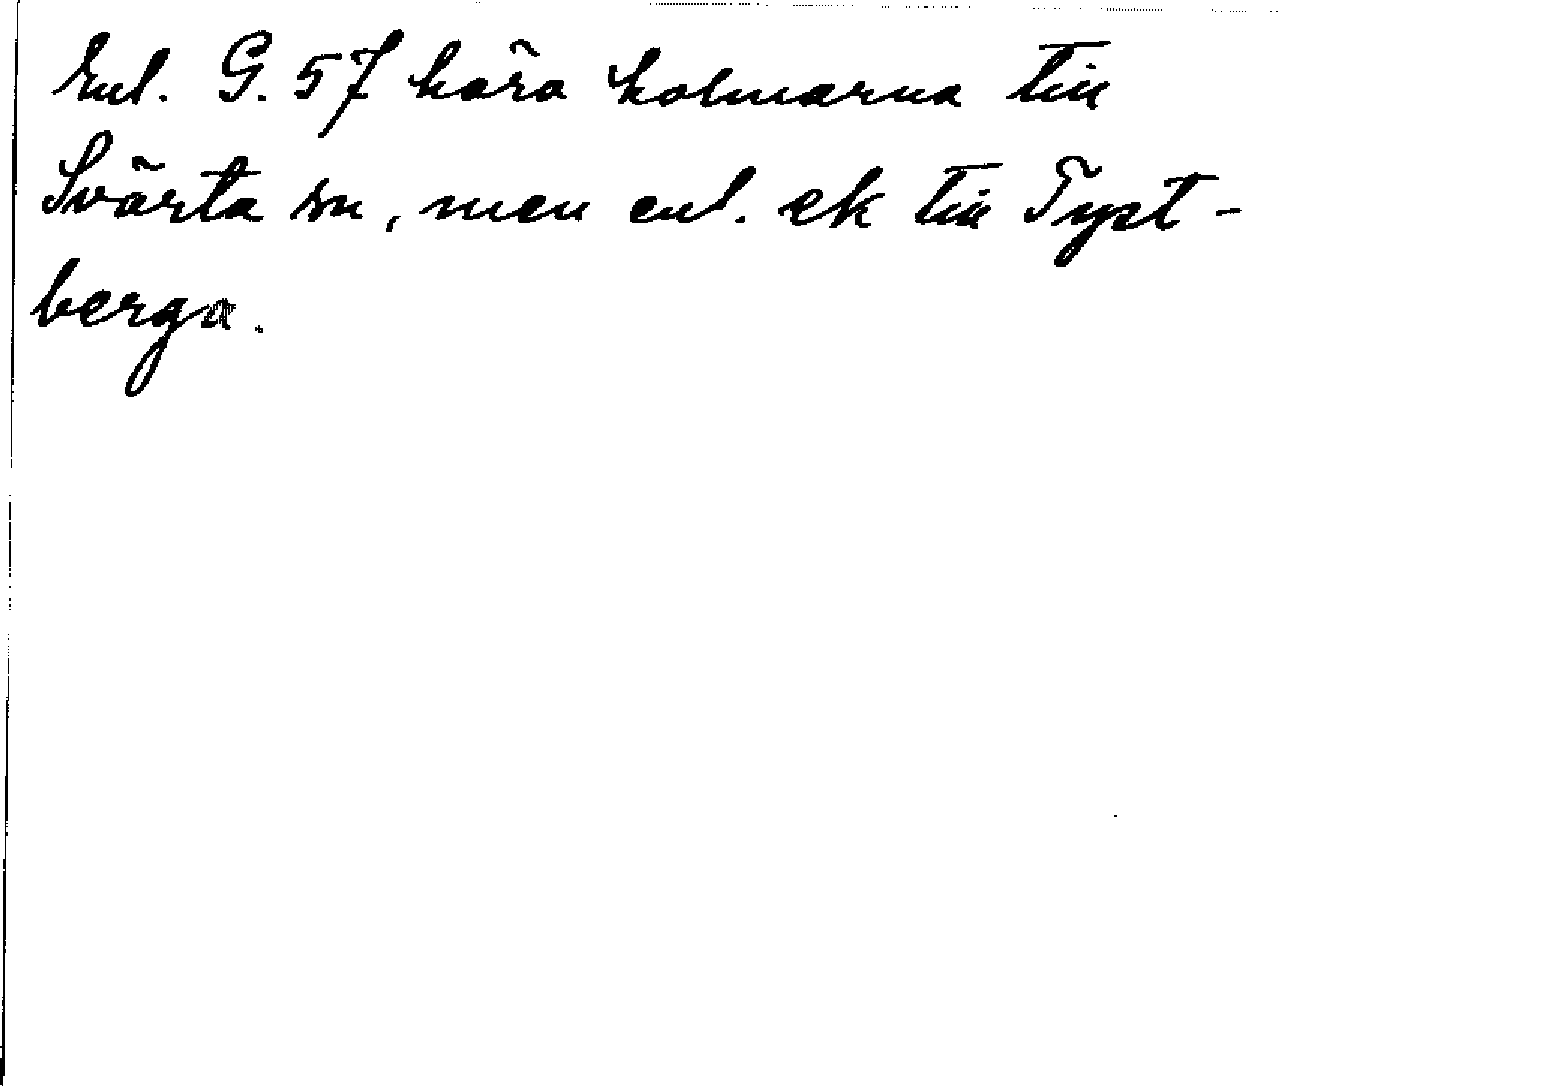 Enl. G. 57 höra holmarna till
Svärta sn, men enl. ek till Tyst-
berga.